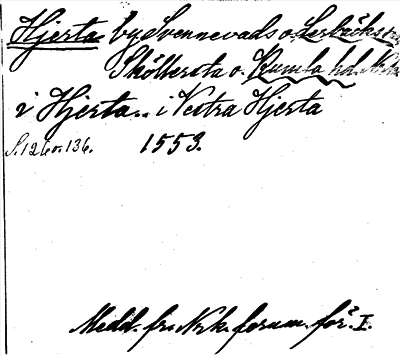 Hjerta by Svennevads o. Lerbäcks
Sköllersta o. Kumla hd.
i Hjerta.. i Vestra Hjerta
S. 126 o. 136. 1553.
Medd. fr. Nrk. fornm. för. I.